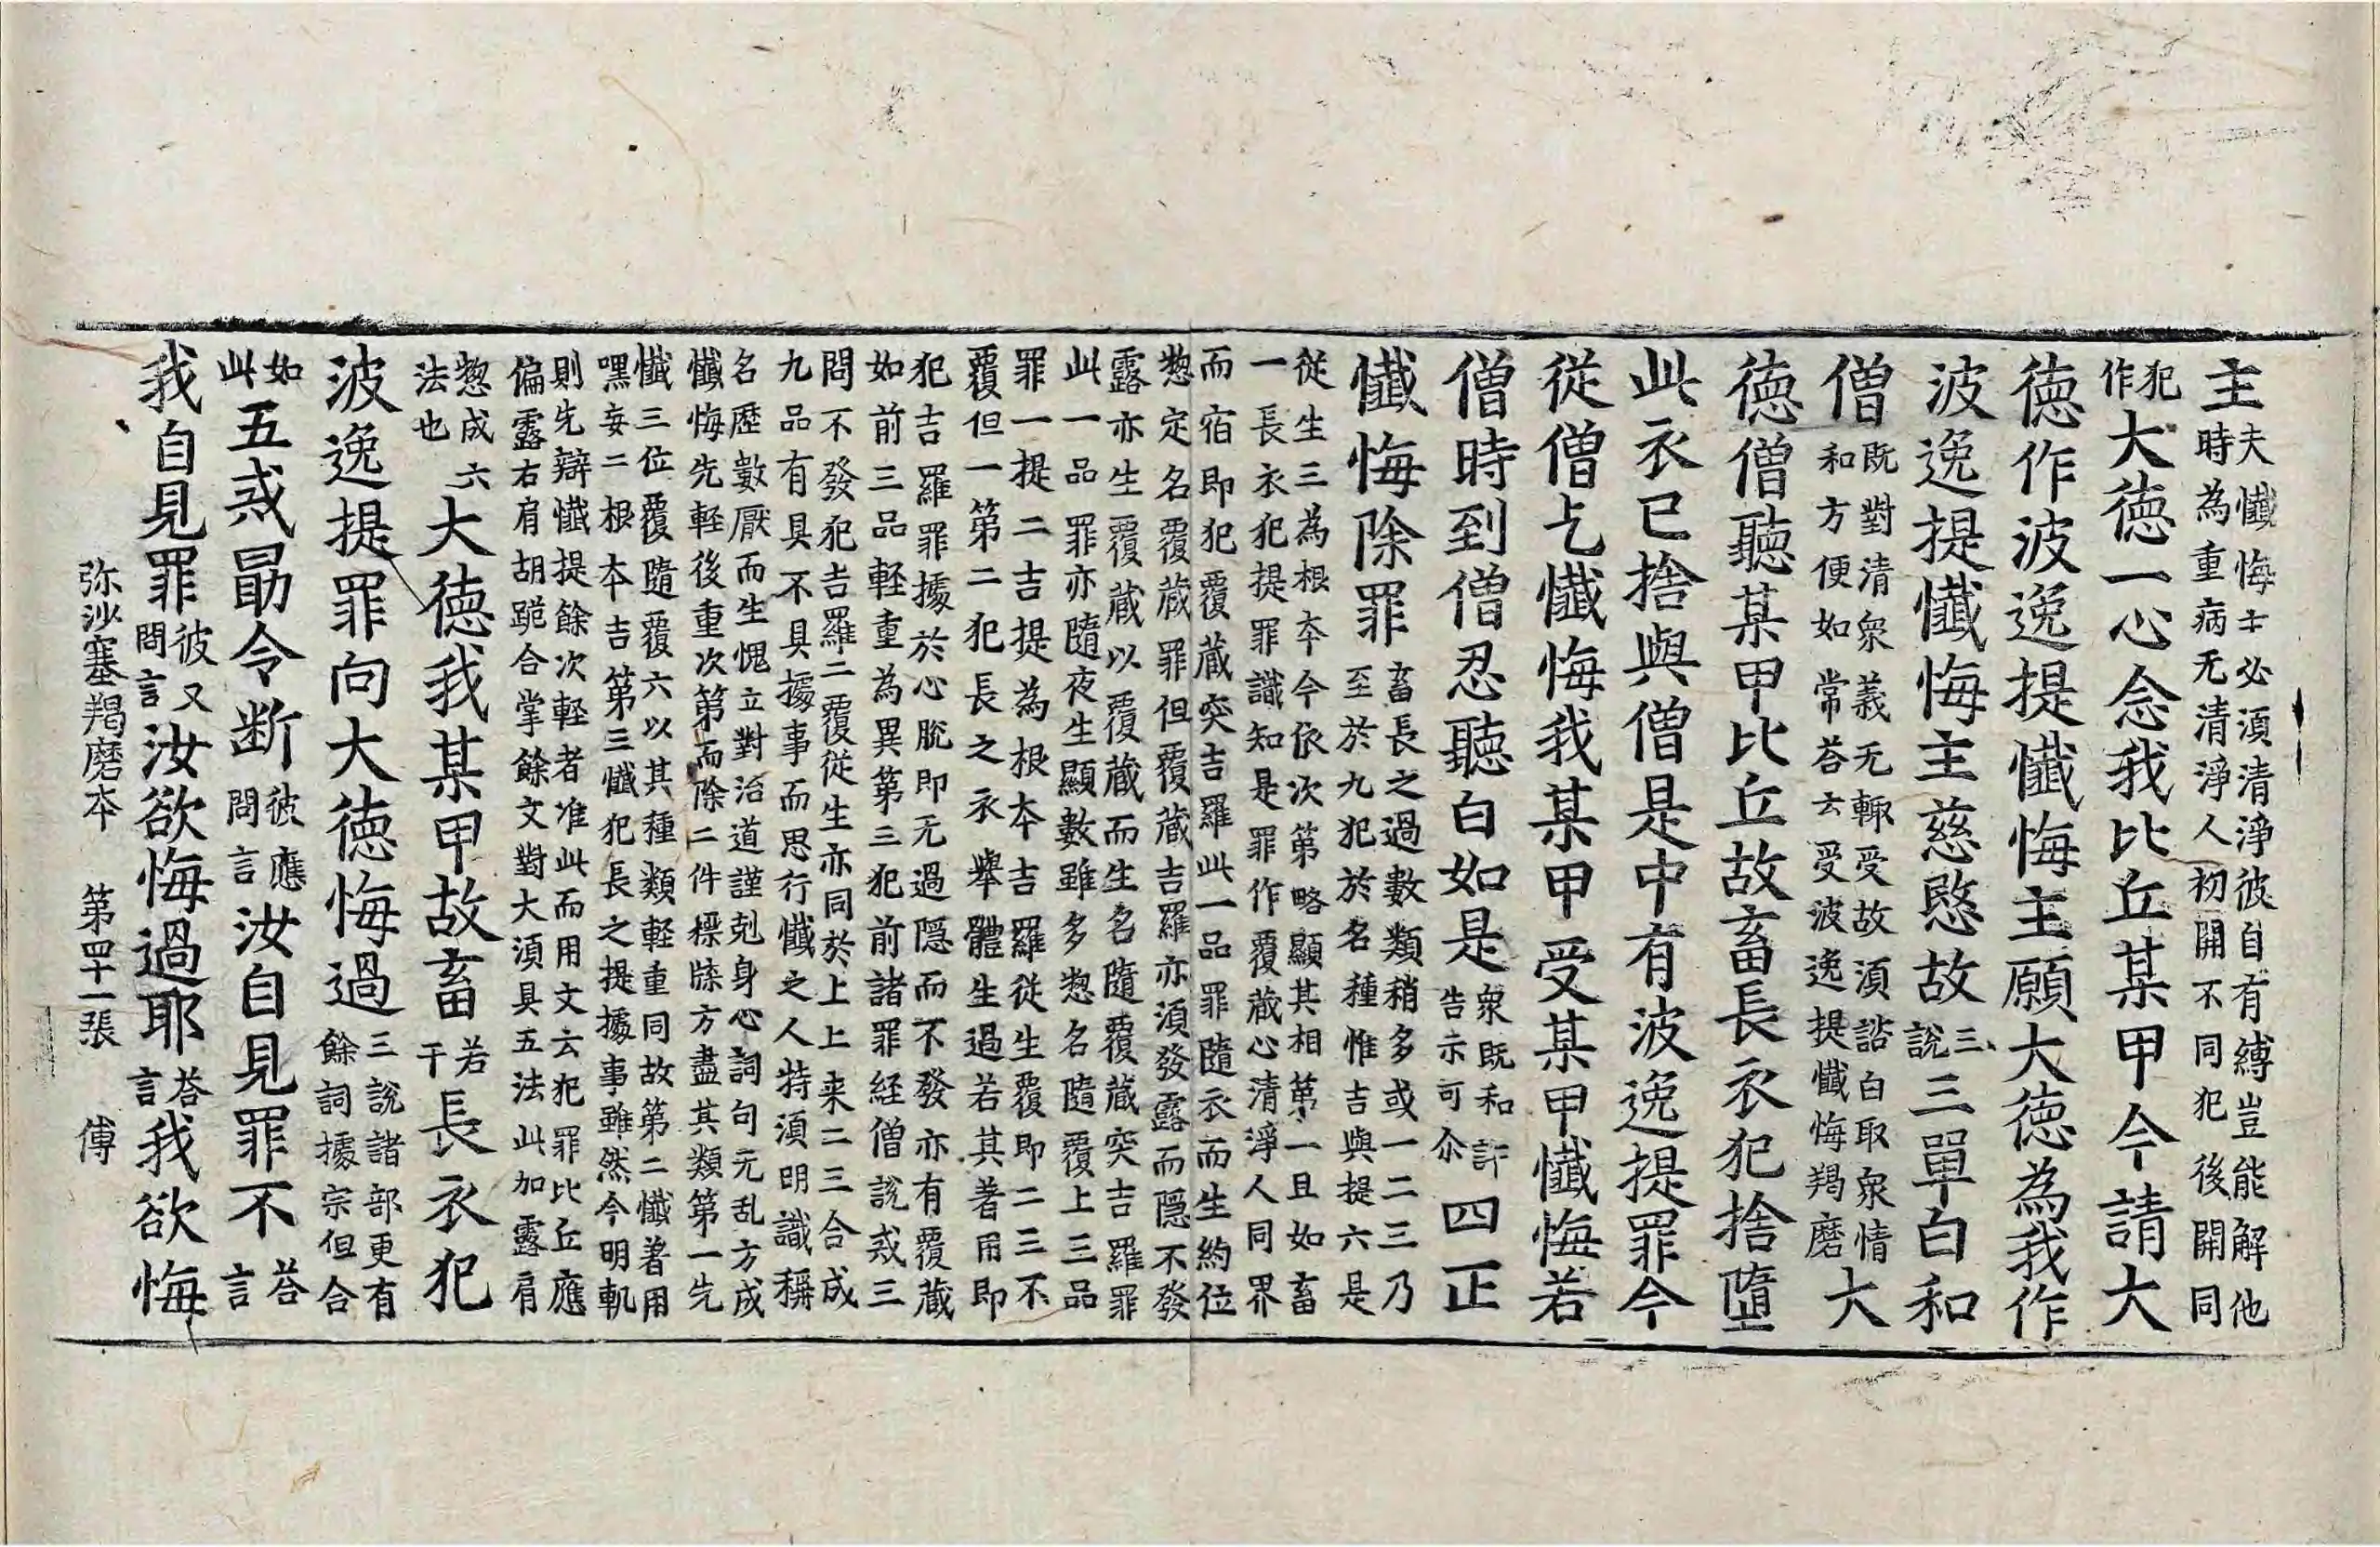 主夫懺悔主必須清淨彼自有縛豈能解他
時為重病无清淨人初開不同犯後開同
犯
作大德一心念我比丘某甲今請大
德作波逸提懺悔主願大德為我作
波逸提懺悔主慈愍故三說三單白和
僧既對清眾義无輙受故須諮白取眾情
和方便如常荅云受波逸提懺悔羯磨大
德僧聽某甲比丘故畜長衣犯捨墮
此衣已捨與僧是中有波逸提罪今
從僧乞懺悔我某甲受某甲懺悔若
僧時到僧忍聽白如是眾既和許
告示可尒四正
懺悔除罪畜長之過數類稍多或一二三乃
至於九犯於名種惟吉與提六是
從生三為根本今依次第略顯其相第一且如畜
一長衣犯提罪識知是罪作覆藏心清淨人同界
而宿即犯覆藏突吉羅此一品罪隨衣而生約位
惣定名覆藏罪但覆藏吉羅亦須發露而隱不發
露亦生覆藏以覆藏而生名隨覆藏突吉羅罪
此一品罪亦隨夜生顯數雖多惣名隨覆上三品
罪一提二吉提為根本吉羅從生覆即二三不
覆但一第二犯長之衣舉體生過若其著用即
犯吉羅罪據於心脫即无過隱而不發亦有覆藏
如前三品輕重為異第三犯前諸罪経僧說戒三
問不發犯吉羅二覆從生亦同於上上来二三合成
九品有具不具據事而思行懺之人特須明識稱
名歷數厭而生愧立對治道謹剋身心詞句无乱方成
懺悔先輕後重次第而除二件標牒方盡其類第一先
懺三位覆隨覆六以其種類輕重同故第二懺著用
嘿妄二根本吉第三懺犯長之提據事雖然今明軌
則先辯懺提餘次輕者准此而用文云犯罪比丘應
偏露右肩胡跪合掌餘文對大須具五法此加露肩
惣成六
法也大德我某甲故畜若
干長衣犯
波逸提罪向大德悔過三說諸部更有
餘詞據宗但合
如
此五戒勗令断彼應
問言汝自見罪不荅
言
我自見罪彼又
問言汝欲悔過耶荅
言我欲悔
弥沙塞羯磨本　第四十一張　傅